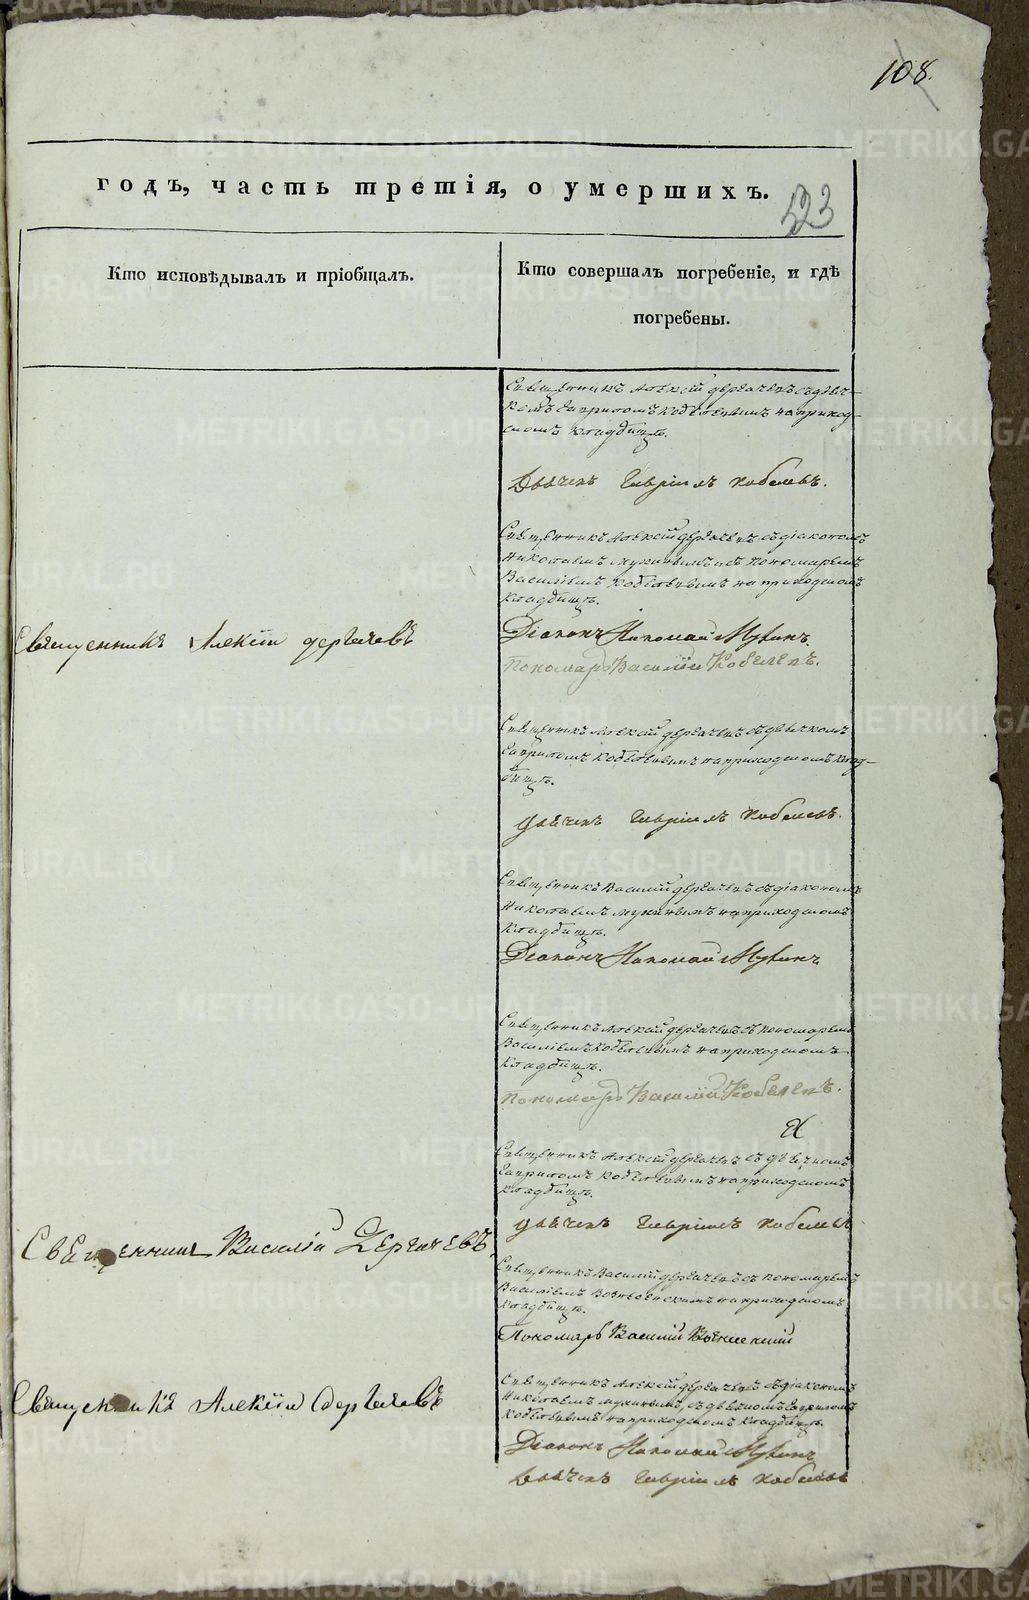 108.
годъ, часть третія, о умершихъ.
523
Кто исповѣдывалъ и пріобщалъ.
Кто совершалъ погребеніе, и гдѣ
погребены.
Священникъ Алексѣй Дергачевъ съ дьяч-
комъ Гавриломъ Кобелевымъ на приход-
скомъ кладбищѣ.
Дьячекъ Гавріилъ Кобелевъ.
Священникъ Алексѣй Дергачевъ съ діакономъ
Николаемъ Мукинымъ и съ пономаремъ
Василіемъ Кобелевымъ на приходскомъ
кладбищѣ.
Священникъ Алексій Дергачевъ
Діаконъ Николай Мукинъ.
Пономарь Василій Кобелевъ.
Священникъ Алексѣй Дергачевъ съ дьячкомъ
Гавриломъ Кобелевымъ на приходскомъ клад-
бищѣ.
Дьячекъ Гавріилъ Кобелевъ.
Священникъ Василій Дергачевъ съ діакономъ
Николаемъ Мукинымъ на приходскомъ
кладбищѣ.
Діаконъ Николай Мукинъ
Священникъ Алексѣй Дергачевъ съ пономаремъ
Василіемъ Кобелевымъ на приходскомъ
кладбищѣ.
Пономарь Василій Кобелевъ.
Священникъ Алексѣй Дергачевъ съ дьячкомъ
Гавриломъ Кобелевымъ на приходскомъ
кладбищѣ.
Дьячекъ Гавріилъ Кобелевъ
Священникъ Василій Дергачевъ
Священникъ Василій Дергачевъ съ пономаремъ
Василіемъ Вознесенскимъ на приходскомъ
кладбищѣ.
Пономарь Василій
Священникъ Алексій Дергачевъ
Священникъ Алексѣй Дергачевъ съ діакономъ
Николаемъ Мукинымъ, съ дьячкомъ Гавриломъ
Кобелевымъ на приходскомъ кладбищѣ.
Діаконъ Николай Мукинъ
Дьячекъ Гавріилъ Кобелевъ
METRIKI.GASO-URAL.RU